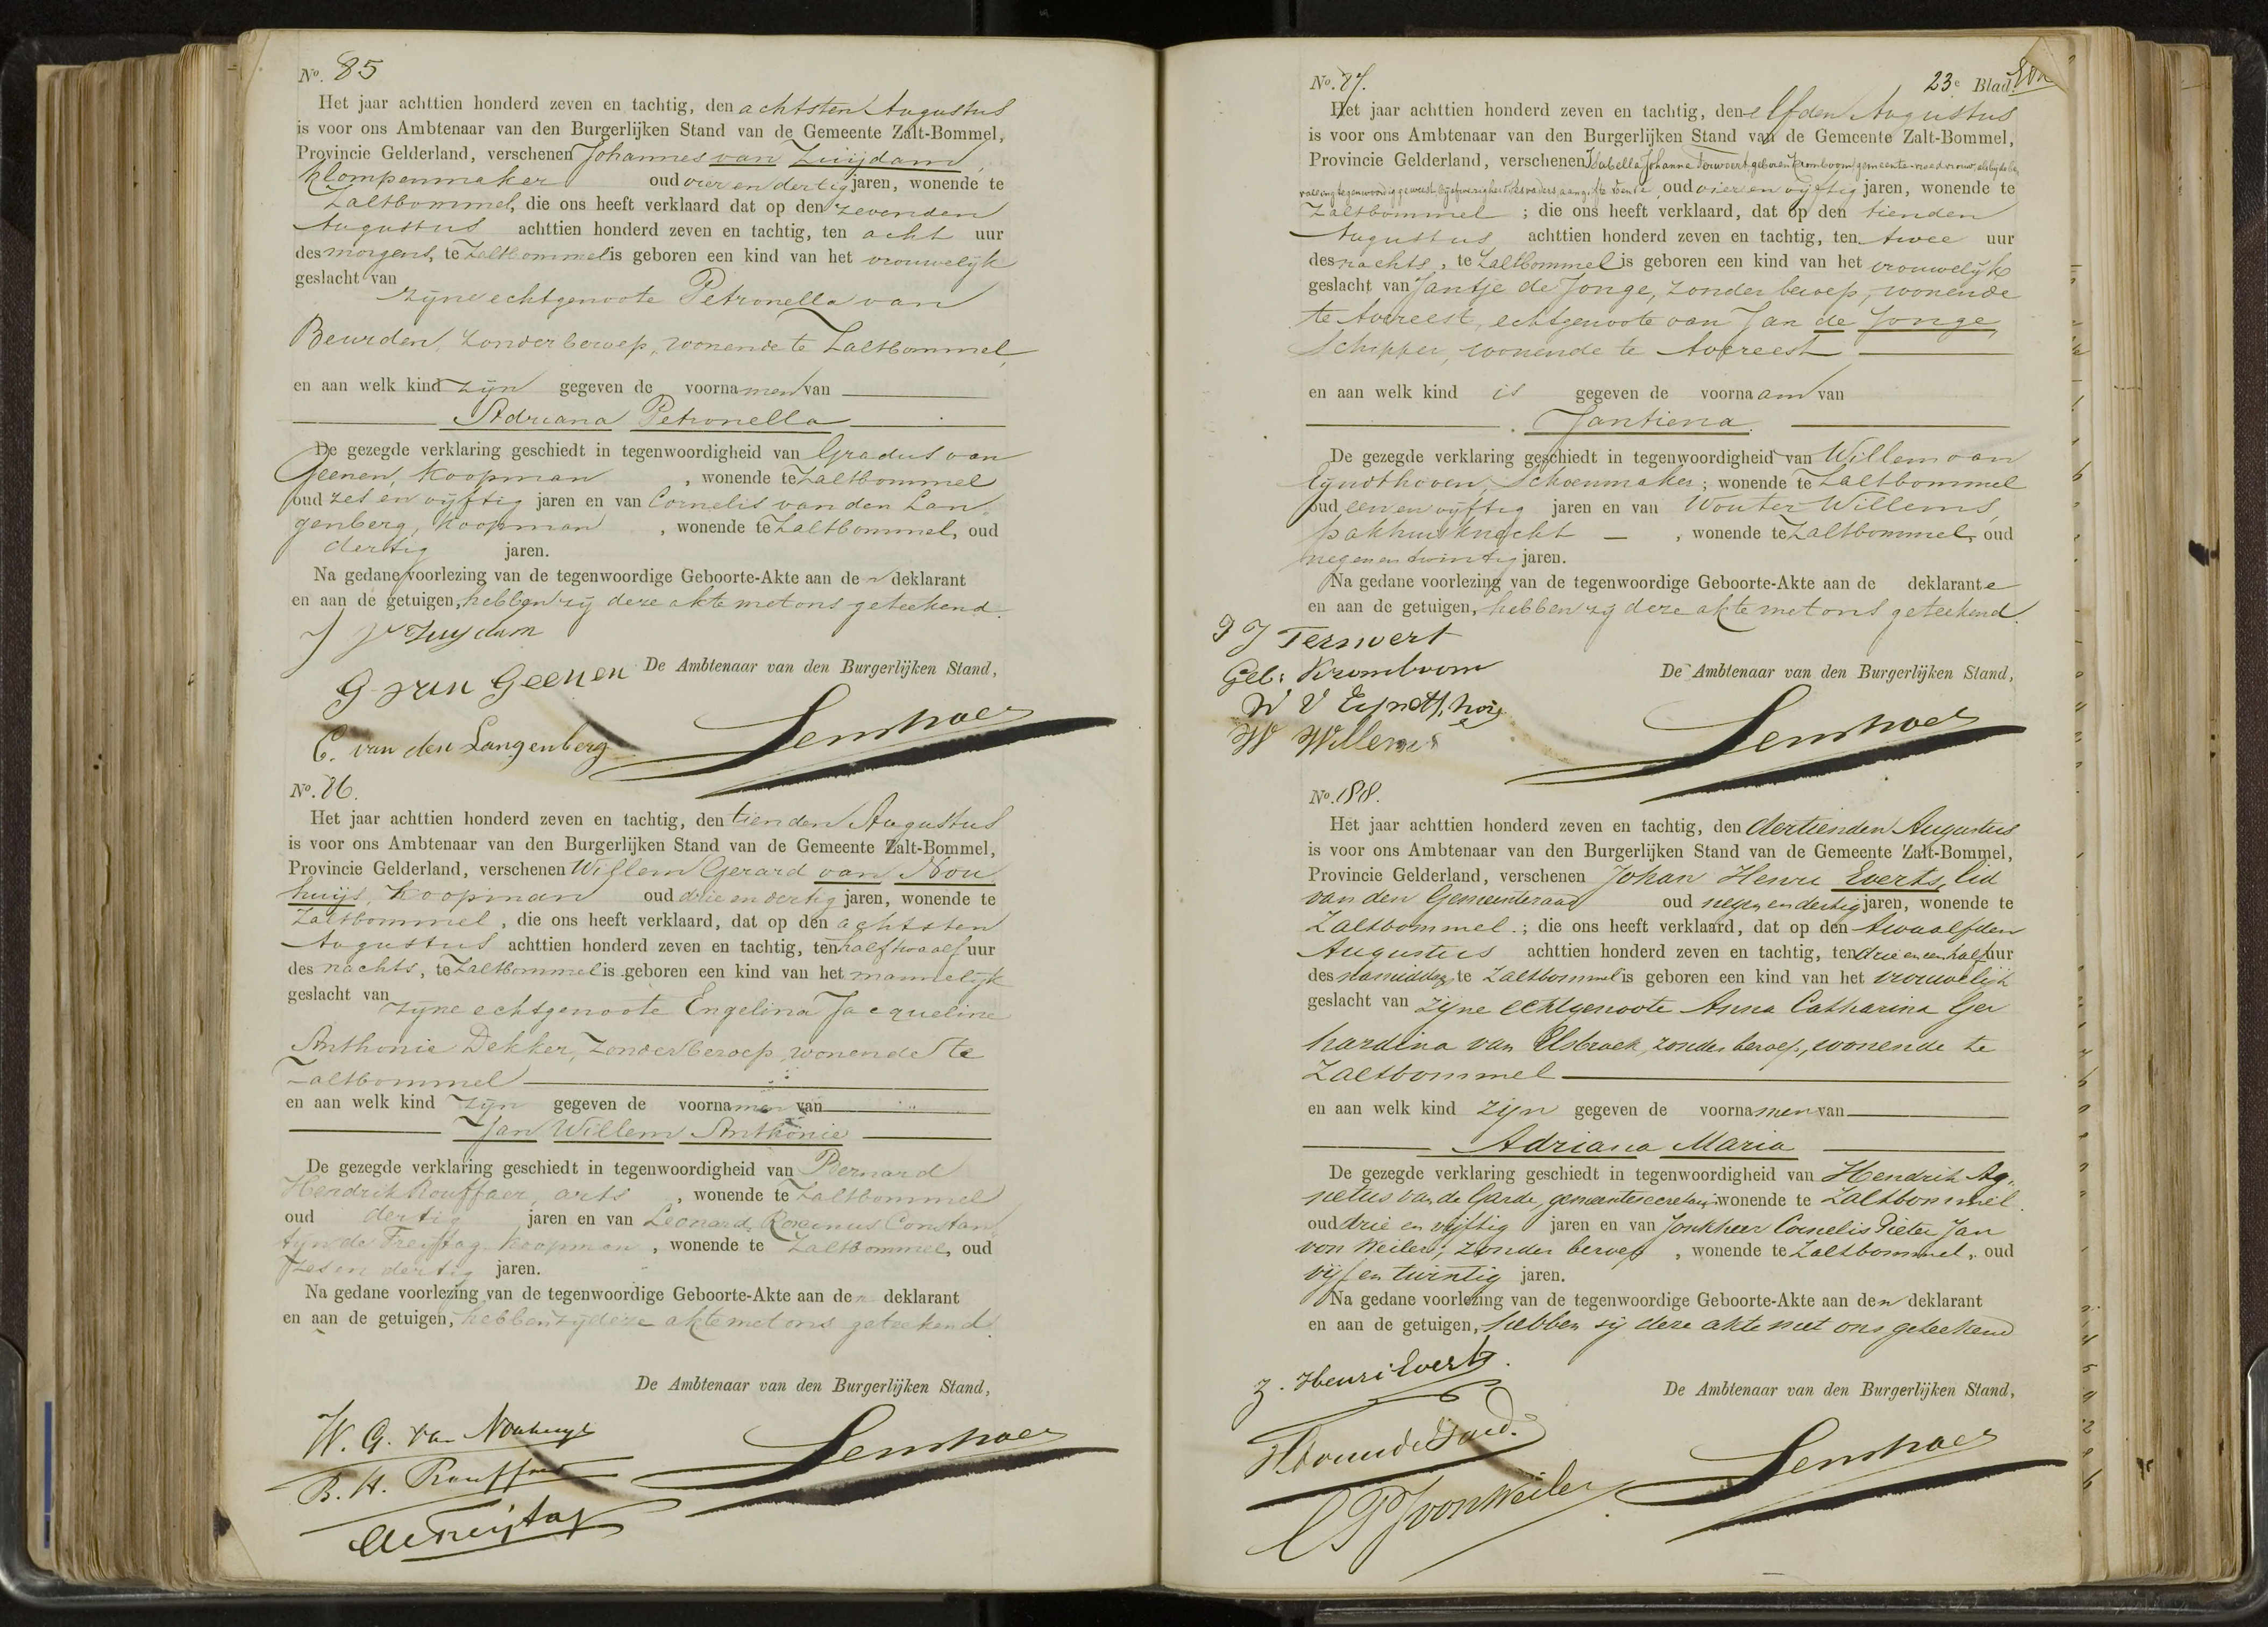 No. 85
Het jaar achttien honderd zeven en tachtig, den achtsten Augustus
is voor ons Ambtenaar van den Burgerlijken Stand van de Gemeente Zalt-Bommel,
Provincie Gelderland, verschenen Johannes van Zuijdam,
klompenmaker oud vier en dertig jaren, wonende te
Zaltbommel, die ons heeft verklaard dat op den zevenden
Augustus achttien honderd zeven en tachtig, ten acht uur
des morgens, te Zaltbommel is geboren een kind van het vrouwelijk
geslacht van
zijne echtgenoote Petronella van
Beurden, zonder beroep, wonende te Zaltbommel,
en aan welk kind zijn gegeven de voornamen van
Adriana Petronella
De gezegde verklaring geschiedt in tegenwoordigheid van Gradus van
Geenen, koopman, wonende te Zaltbommel
oud zes en vijftig jaren en van Cornelis van den Lan-
genberg, koopman, wonende te Zaltbommel, oud
dertig jaren.
Na gedane voorlezing van de tegenwoordige Geboorte-Akte aan den deklarant
en aan de getuigen, hebben zij deze akte met ons geteekend.
J v Zuydam
De Ambtenaar van den Burgerlijken Stand,
G van Geenen
C. van den Langenberg
No. 86.
Het jaar achttien honderd zeven en tachtig, den tienden Augustus
is voor ons Ambtenaar van den Burgerlijken Stand van de Gemeente Zalt-Bommel,
Provincie Gelderland, verschenen Willem Gerard van Nou
huijs, koopman oud drie en dertig jaren, wonende te
Zaltbommel, die ons heeft verklaard, dat op den achtsten
Augustus achttien honderd zeven en tachtig, ten half twaalf uur
des nachts, te Zaltbommel is geboren een kind van het mannelijk
geslacht van
zijne echtgenoote Engelina Jacqueline
Anthonie Dekker, zonder beroep, wonende te
Zaltbommel
en aan welk kind zijn gegeven de voornamen van
Jan Willem Anthonie
De gezegde verklaring geschiedt in tegenwoordigheid van Bernard
Hendrik Rouffaer, arts, wonende te Zaltbommel
oud dertig jaren en van Leonard Constan
tijn de Freijtag koopman, wonende te Zaltbommel, oud
zes en dertig jaren.
Na gedane voorlezing van de tegenwoordige Geboorte-Akte aan den deklarant
en aan de getuigen, hebben zij deze akte met ons geteekend.
De Ambtenaar van den Burgerlijken Stand,
W. G. van Nouhuys
B. H. Rouffaer
de Freijtag
No. 87.
23e Blad.
Het jaar achttien honderd zeven en tachtig, den elfden Augustus
is voor ons Ambtenaar van den Burgerlijken Stand van de Gemeente Zalt-Bommel,
Provincie Gelderland, verschenen Isabella Johanna Terwert geboren Kromboom gemeente-vroedvrouw, als bij de be-
valling tegenwoordig geweest, bij afwezigheid des vaders aangifte doende, oud vier en vijftig jaren, wonende te
Zaltbommel; die ons heeft verklaard, dat op den tienden
Augustus achttien honderd zeven en tachtig, ten twee uur
des nachts, te Zaltbommel is geboren een kind van het vrouwelijk
geslacht van Jantje de Jonge, zonder beroep, wonende
te Avereest, echtgenoote van Jan de Jonge,
Schipper, wonende te Avereest
en aan welk kind is gegeven de voornaam van
Jantiena.
De gezegde verklaring geschiedt in tegenwoordigheid van Willem van
Eijndthoven, Schoenmaker; wonende te Zaltbommel
oud een en vijftig jaren en van Wouter Willems,
pakhuisknecht, wonende te Zaltbommel, oud
negen en twintig jaren.
Na gedane voorlezing van de tegenwoordige Geboorte-Akte aan de deklarante
en aan de getuigen, hebben zij deze akte met ons geteekend.
I J Terwert
Geb: Kromboom
De Ambtenaar van den Burgerlijken Stand,
W V Eyndthove
W Willems
No. 88.
Het jaar achttien honderd zeven en tachtig, den dertienden Augustus
is voor ons Ambtenaar van den Burgerlijken Stand van de Gemeente Zalt-Bommel,
Provincie Gelderland, verschenen Johan Henri Everts, lid
van den Gemeenteraad oud negen en dertig jaren, wonende te
Zaltbommel.; die ons heeft verklaard, dat op den twaalfden
Augustus achttien honderd zeven en tachtig, ten drie en een half uur
des namiddag, te Zaltbommel is geboren een kind van het vrouwelijk
geslacht van zijne echtgenoote Anna Catharina Ger
hardina van Elsbroek, zonder beroep, wonende te
Zaltbommel
en aan welk kind zijn gegeven de voornamen van
Adriana Maria
De gezegde verklaring geschiedt in tegenwoordigheid van Hendrik Ag-
netus van de Garde, gemeentesecretaris wonende te Zaltbommel.
oud drie en vijftig jaren en van Jonkheer Cornelis Pieter Jan
von Weiler, zonder beroep, wonende te Zaltbommel, oud
vijf en twintig jaren.
Na gedane voorlezing van de tegenwoordige Geboorte-Akte aan den deklarant
en aan de getuigen, hebben zij deze akte met ons geteekend
J. Henri Everts.
De Ambtenaar van den Burgerlijken Stand,
C P J von Weiler